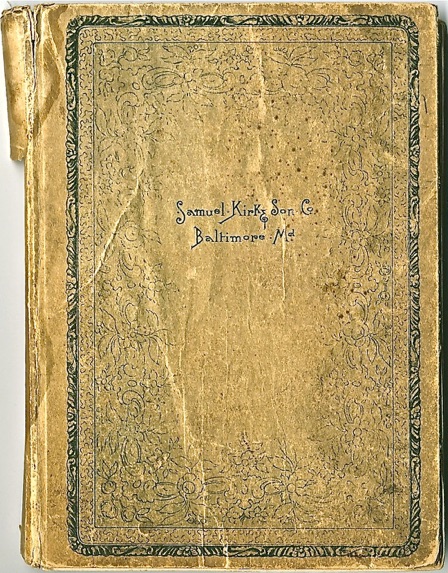 Samuel·Kirk & Son·Co.
Baltimore·Md